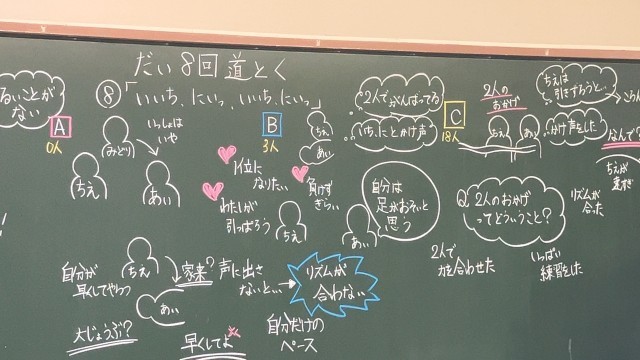 だい8回道とく
⑧「いいち、にいっ、いいち、にいっ」
るいことが
ない
A
0人
みどり
いっしょは
いや
ちえ
あい
B
3人
1位に
なりたい
わたしが
引っぱろう
ちえ
あい
負けず
ぎらい
ちえ
2人でがんばってる
いち、にとかけ声
C
18人
自分は
足がおそいと
思う
あい
2人の
おかげ
ちえ
あい
ちえは
引きずろうと…
かけ声をした
なんで?
ちえが
リズムが
合った
Q 2人のおかげ
ってどういうこと?
2人で
力を合わせた
いっぱい
練習をした
自分が
早くしてやっつ
ちえ
あい
家来?
声に出さ
ないと…
リズムが
合わない
大じょうぶ?
早くしてよ
自分だけの
ペース